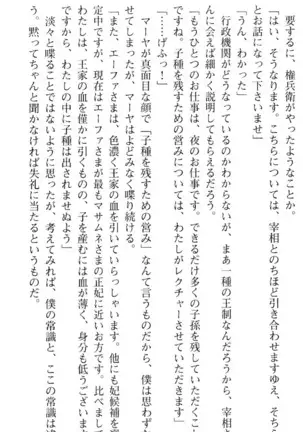 要するに、権兵衛がやったようなことか。
「はい、そうなります。こちらについては、宰相とのちほど引き合わせますゆえ、そちら
とお話になって下さいませ」
「うん、わかった」
行政機関がどうなっているのかわからないが、まあ一種の王制なんだろうから、宰相
んに会えば細かく説明してもらえるだろう。
「もうひとつのお仕事は、夜のお仕事です。できるだけ多くの子孫を残していただくこ
ですね。子種を残すための営みについては、わたしがレクチャーさせていただきます」
「……げふっ！」
マーヤが真面目な顔で「子種を残すための営み」なんて言うものだから、僕は思わず
せてしまったが、マーヤはよどみなく喋り続ける。
「また、エーファさまは、色濃く王家の血を引いていらっしゃいます。他にも妃候補を
定中ですが、現在はエーファさまが最もマサムネさまの正妃に近いお方です。比べまし
わたしは、王家の血を僅かに引くものの、子を産むには血が薄く、身分も低うございま
ですから、わたしの中に子種は出されませぬよう」
淡々と喋ることではないように思ったが、考えてみれば、僕の常識と、ここの常識は
う。黙ってちゃんと聞かなければ失礼に当たるというものだ。